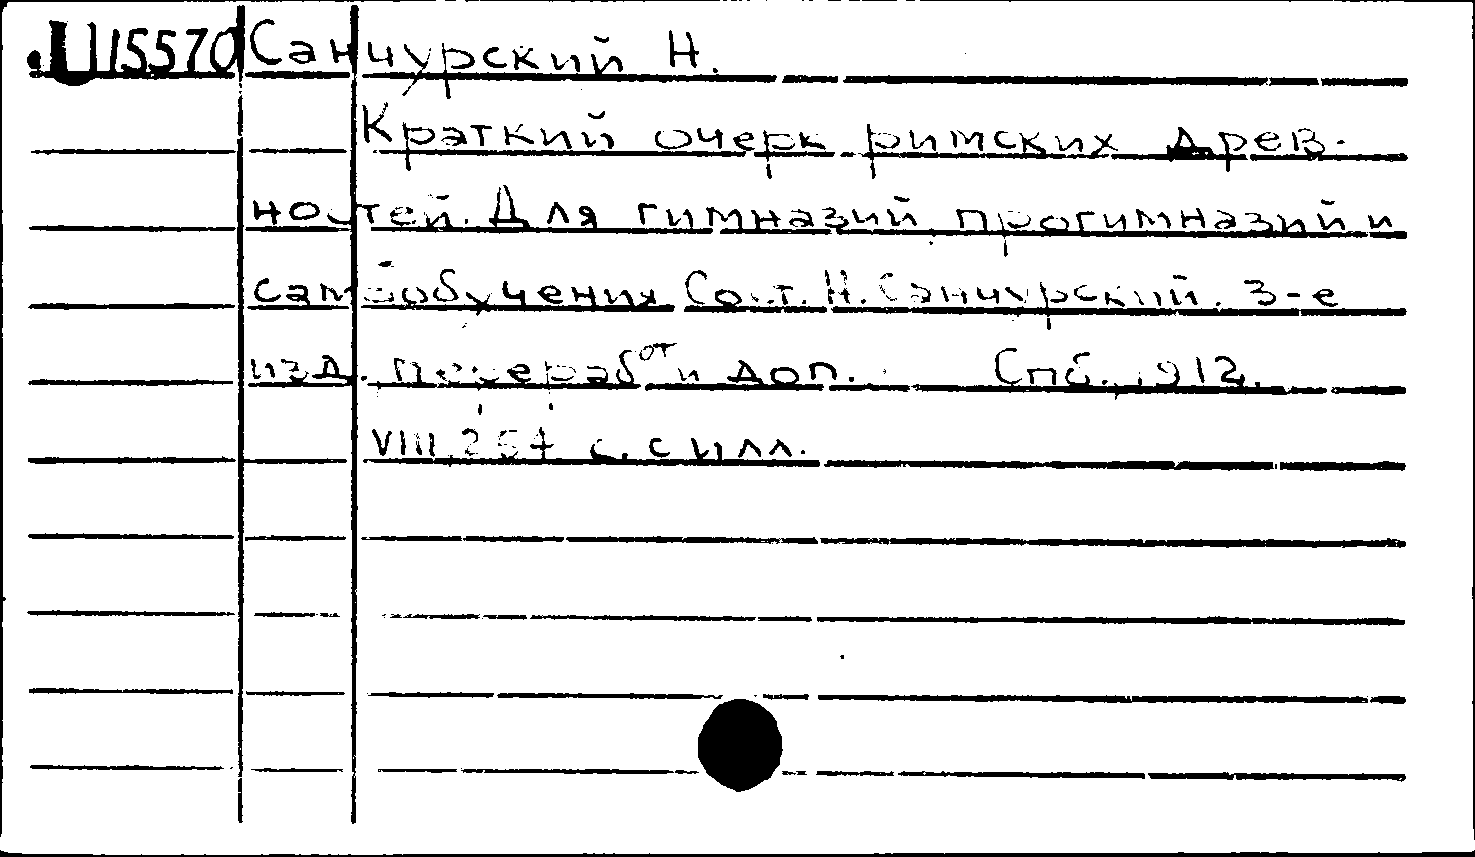 U 15570 Санчурский Н.
Краткий очерк римских древ-
ностей. Для гимназий, прогимназий и
самообучения. Сост. Н. Санчурский. 3-е
изд. перераб от и доп. Спб., 1912.
VIII, 264 с. с илл.